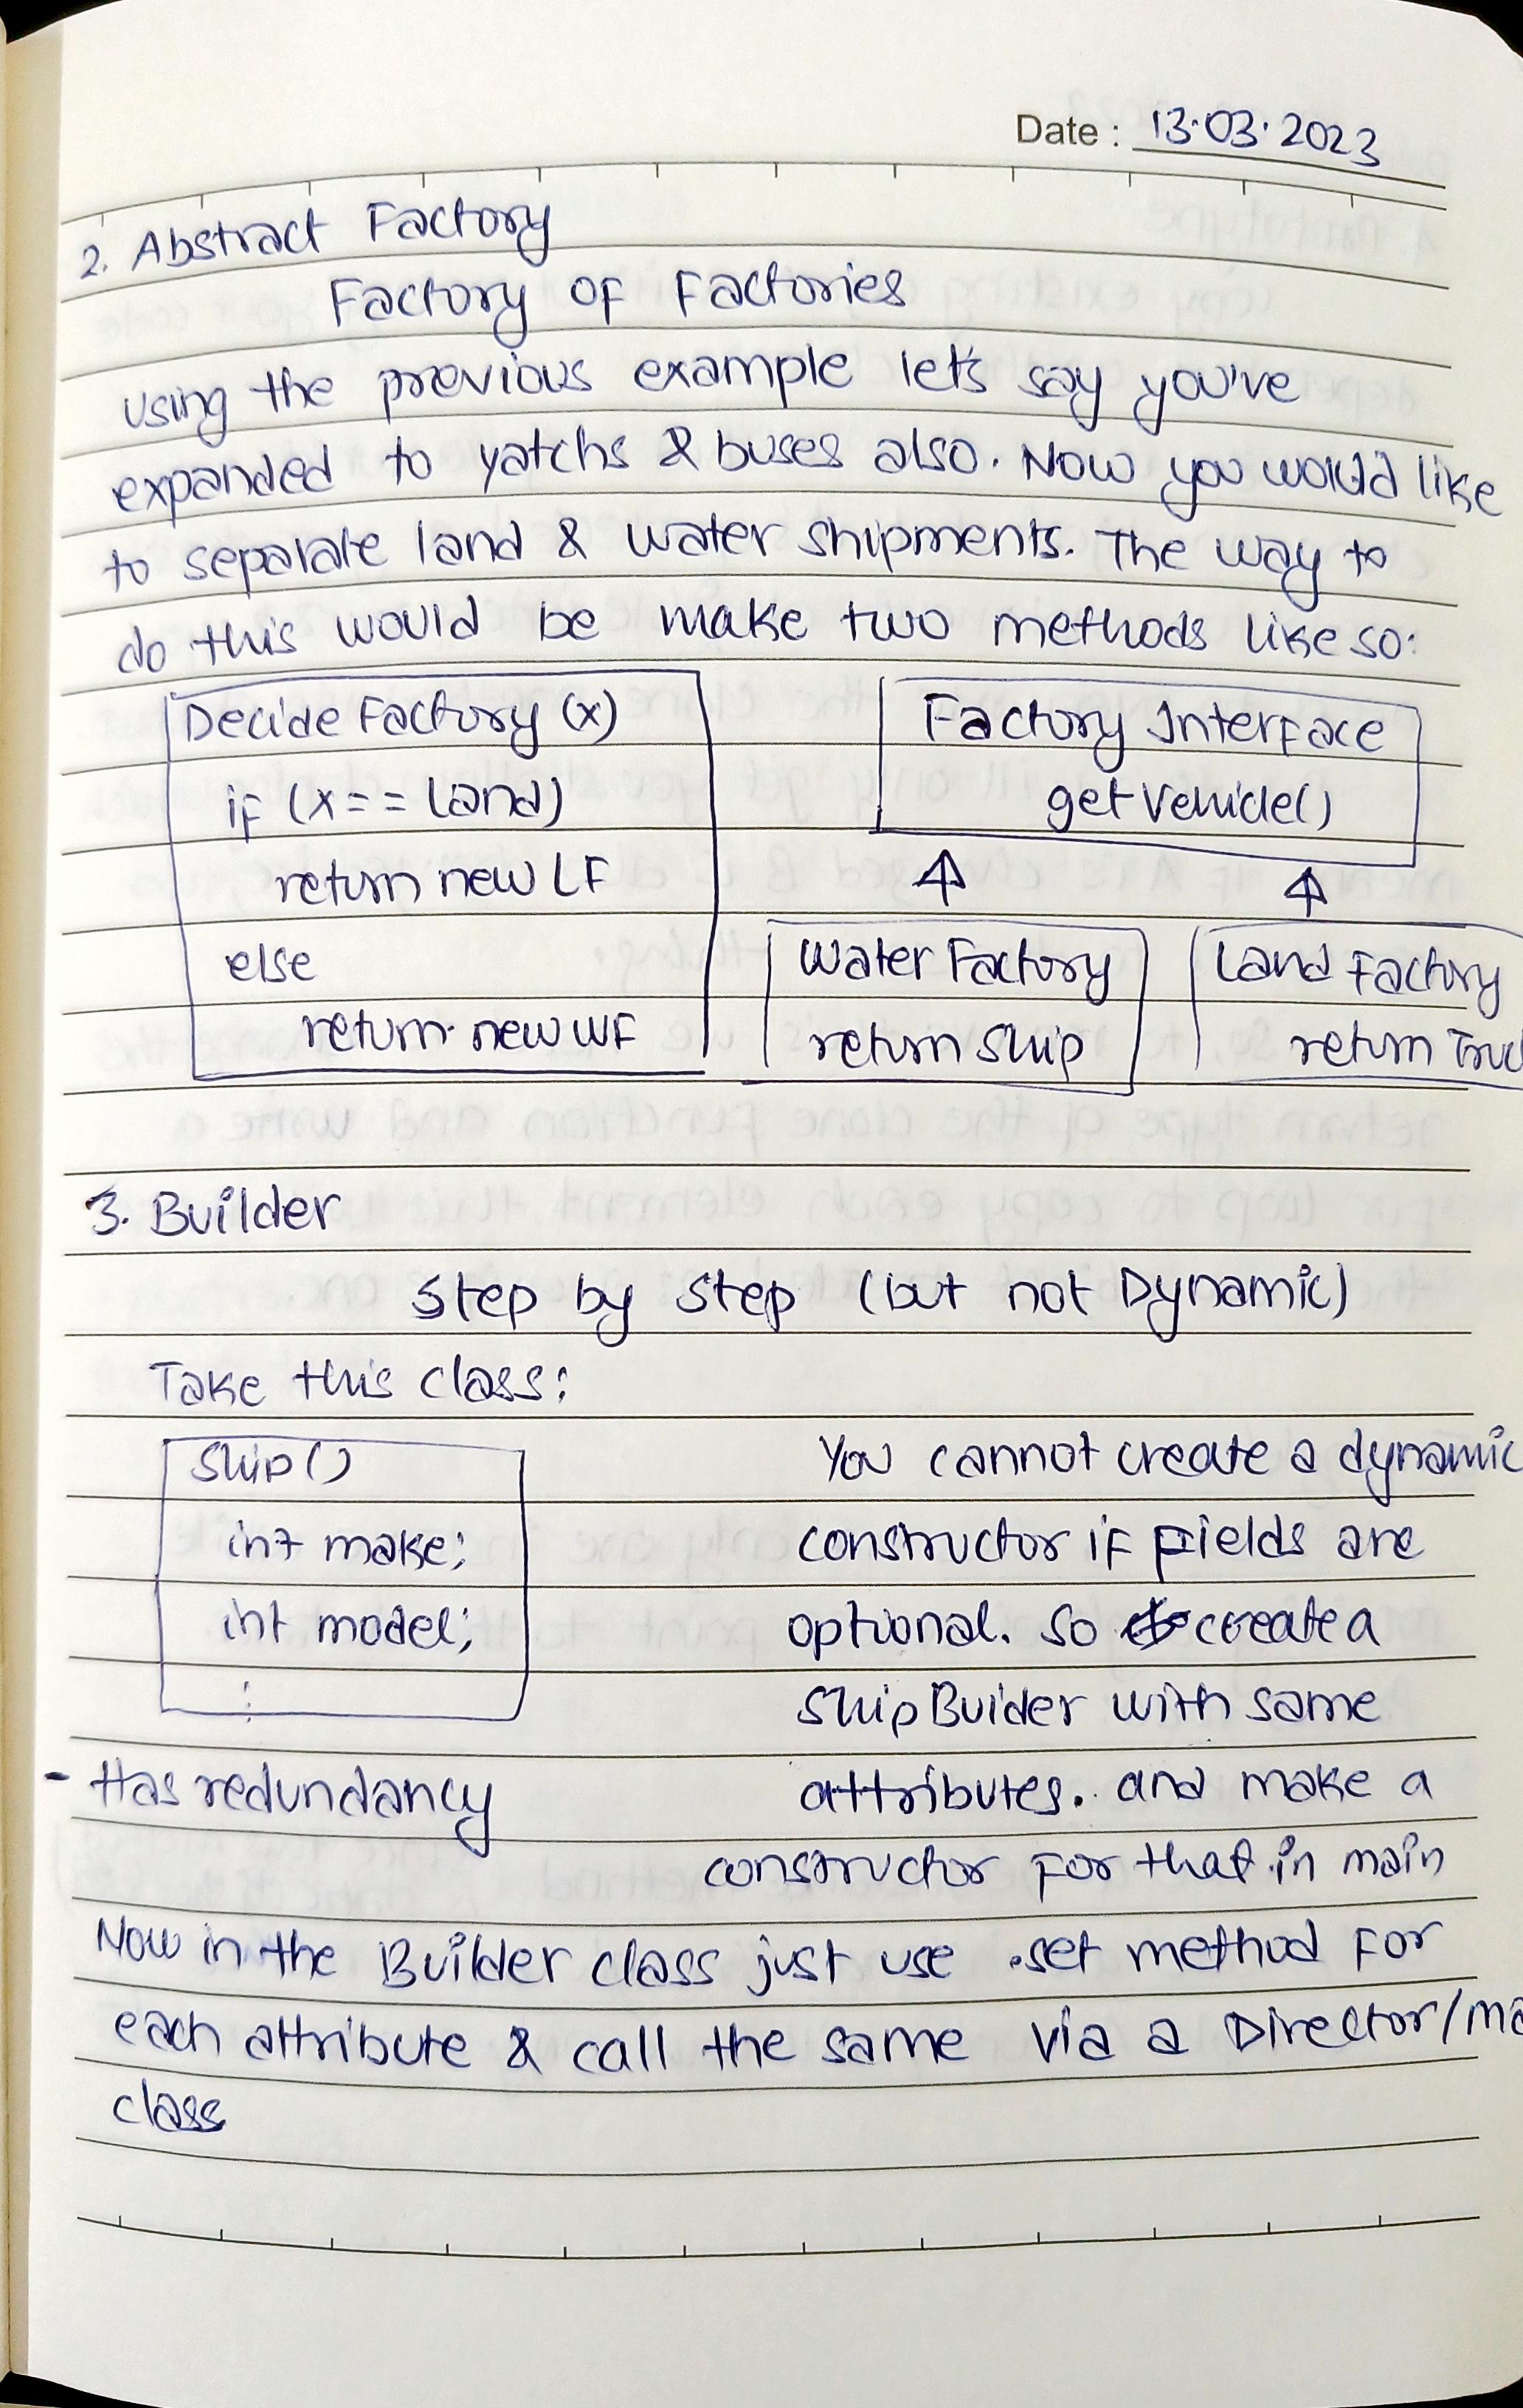 Date : 13.03.2023
2. Abstract Factory
Factory of Factories
using the previous example let's say you've
expanded to yatchs & buses also. Now you would like
to separate land & water shipments. The way to
do this would be make two methods like so:
Decide Factory (x)
if (x == Land)
return new LF
else
return new WF
Factory Interface
getVehicle()
Water Factory
return Ship
Land Factory
return Truc
3. Builder
Step by Step (but not Dynamic)
Take this class:
Ship()
int make;
int model;
:
- Has redundancy
You cannot create a dynamic
constructor if fields are
optional. So create a
Ship Buider with same
attributes. and make a
constructor For that in main
Now in the Builder class just use .set method for
each attribute & call the same via a Director/ma
class